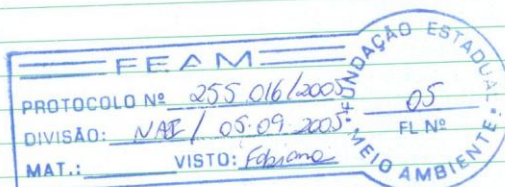 FEAM
PROTOCOLO Nº 255.016/2005
DIVISÃO: NAI / 05.09.2005
MAT.: VISTO: Fabiana
FUNDAÇÃO ESTADUAL
05
FL Nº
MEIO AMBIENTE